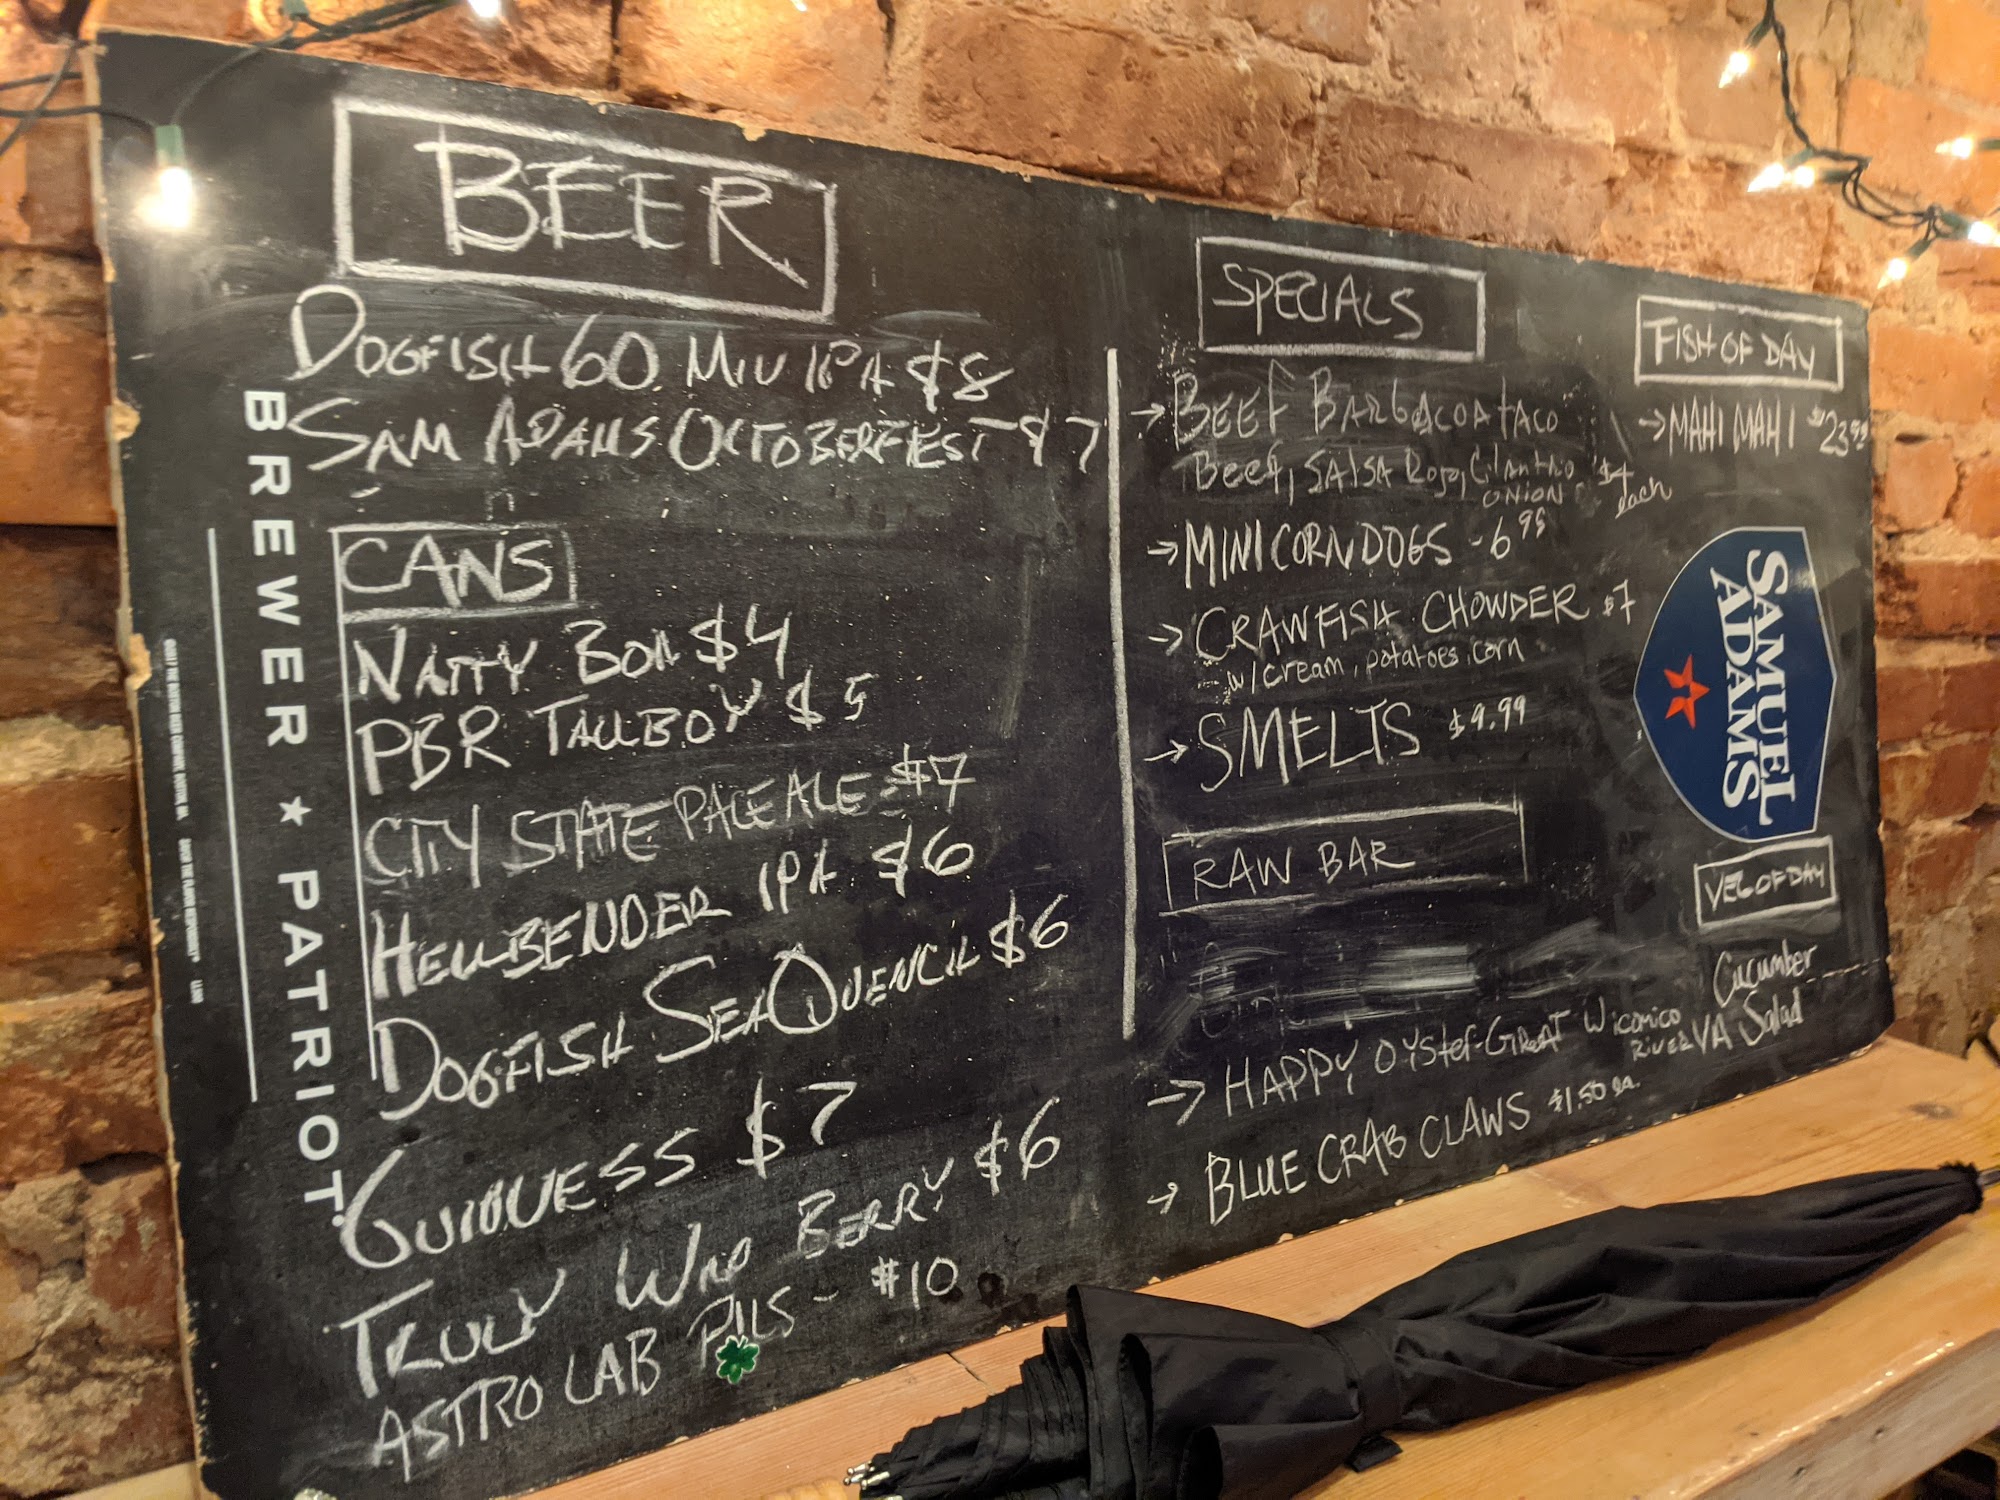 BEER
DOGFISH 60 MIN IPA $8
SAM ADAMS OCTOBERFIEST $7
CANS
NATTY BOH $4
PBR TALLBOY $5
CITY STATE PALE ALE $7
HELLBENDER IPA $6
DOGFISH SEAQUENCH $6
GUINNESS $7
TRULY WILD BERRY $6
ASTRO LAB PILS - $10
BREWER ★ PATRIOT.
SPECIALS
→ BEEF BARBACOA TACO
Beef, SALSA Rojo, Cilantrio
ONION $4
each
→ MINI CORNDOGS - 6 95
→ CRAWFISH CHOWDER $7
w/cream, potatoes, corn
→ SMELTS $9.99
RAW BAR
→ HAPPY OYSter-GREAT WICOMICO
RIVER VA
→ BLUE CRAB CLAWS $1.50 ea.
FISH OF DAY
→ MAHI MAHI $23 99
SAMUEL
ADAMS
VEG OF DAY
Cucumber
Salad